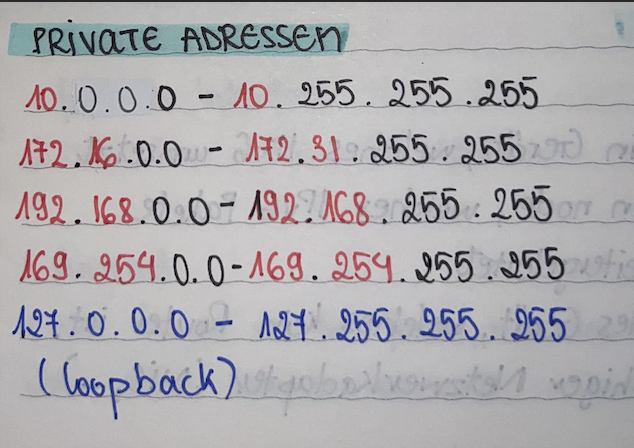 PRIVATE ADRESSEN
10.0.0.0 - 10.255.255.255
172.16.0.0 - 172.31.255.255
192.168.0.0 - 192.168.255.255
169.254.0.0 - 169.254.255.255
127.0.0.0 - 127.255.255.255
(loopback)